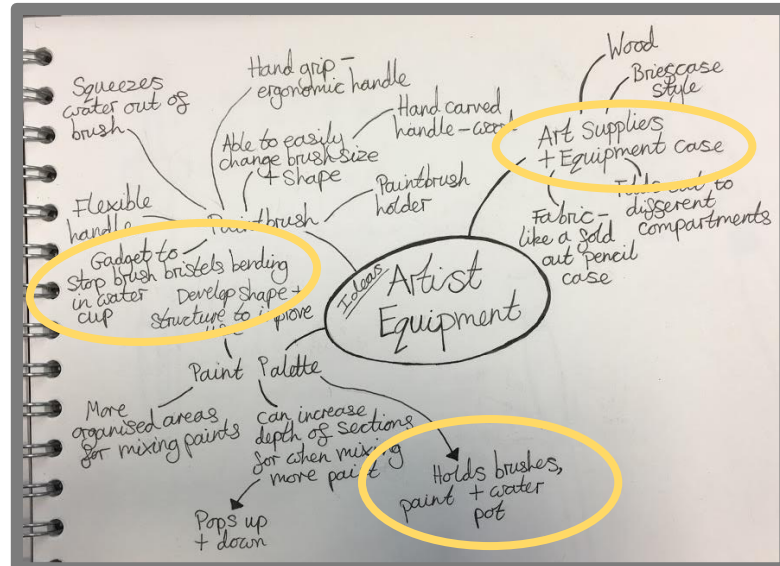 Squeezes
water out of
brush
Hand grip –
ergonomic handle
Able to easily
change brush size
+ shape
Hand carved
handle –
Paintbrush
holder
Flexible
handle
Paintbrush
Gadget to
stop brush bristels bending
in water
cup
Develop shape +
structure to improve
Wood
Briefcase
style
Art Suppliers
+ Equipment case
Fabric –
like a fold
out pencil
case
out to
different
compartments
Ideas
Artist
Equipment
Paint Palette
More
organised areas
for mixing paints
can increase
depth of sections
for when mixing
more paint
Pops up
+ down
Holds brushes,
paint + water
pot